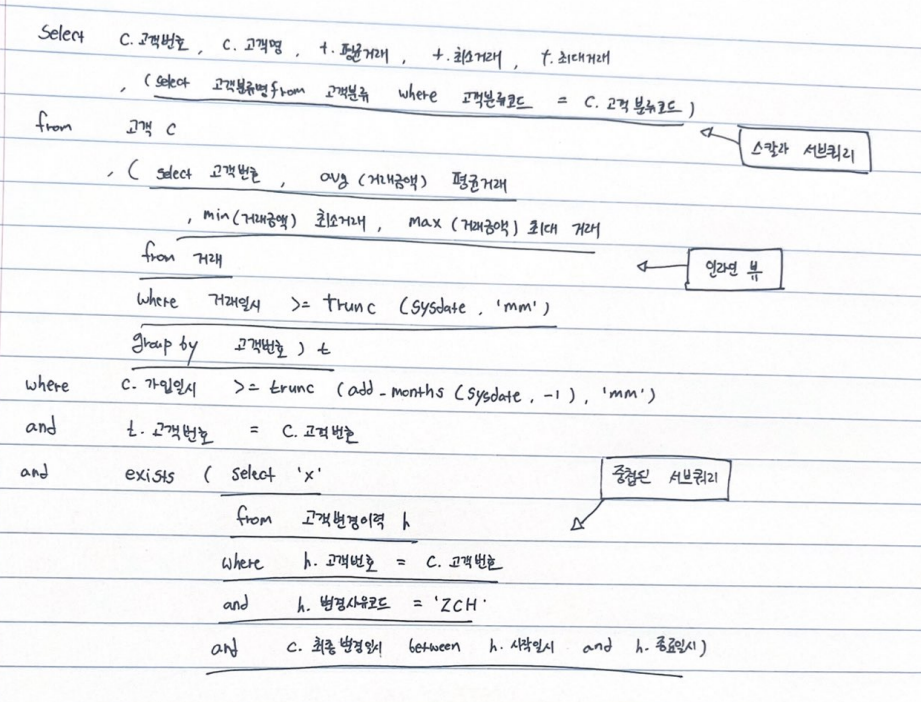 Select C.고객번호, C.고객명, t.평균거래, t.최소거래, t.최대거래
, (select 고객분류명 from 고객분류 where 고객분류코드 = C.고객분류코드)
스칼라 서브쿼리
from 고객 C
, ( select 고객번호, avg (거래금액) 평균거래
, min(거래금액) 최소거래, max (거래금액) 최대 거래
from 거래
인라인 뷰
where 거래일시 >= trunc (sysdate, 'mm')
group by 고객번호 ) t
where C.가입일시 >= trunc (add_months (sysdate, -1), 'mm')
and t.고객번호 = C.고객번호
and exists ( select 'x'
중첩된 서브쿼리
from 고객변경이력 h
where h.고객번호 = C.고객번호
and h.변경사유코드 = 'ZCH'
and C.최종변경일시 between h.시작일시 and h.종료일시)